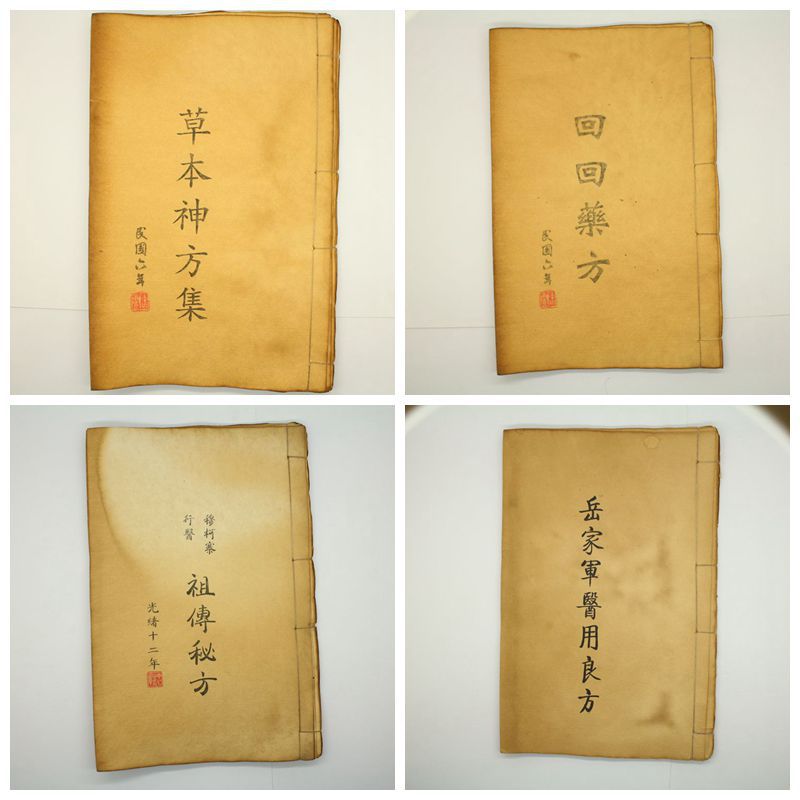 草本神方集
民國六年
回回藥方
民國六年
穆柯寨
行醫
祖傳秘方
光緒十二年
岳家軍醫用良方